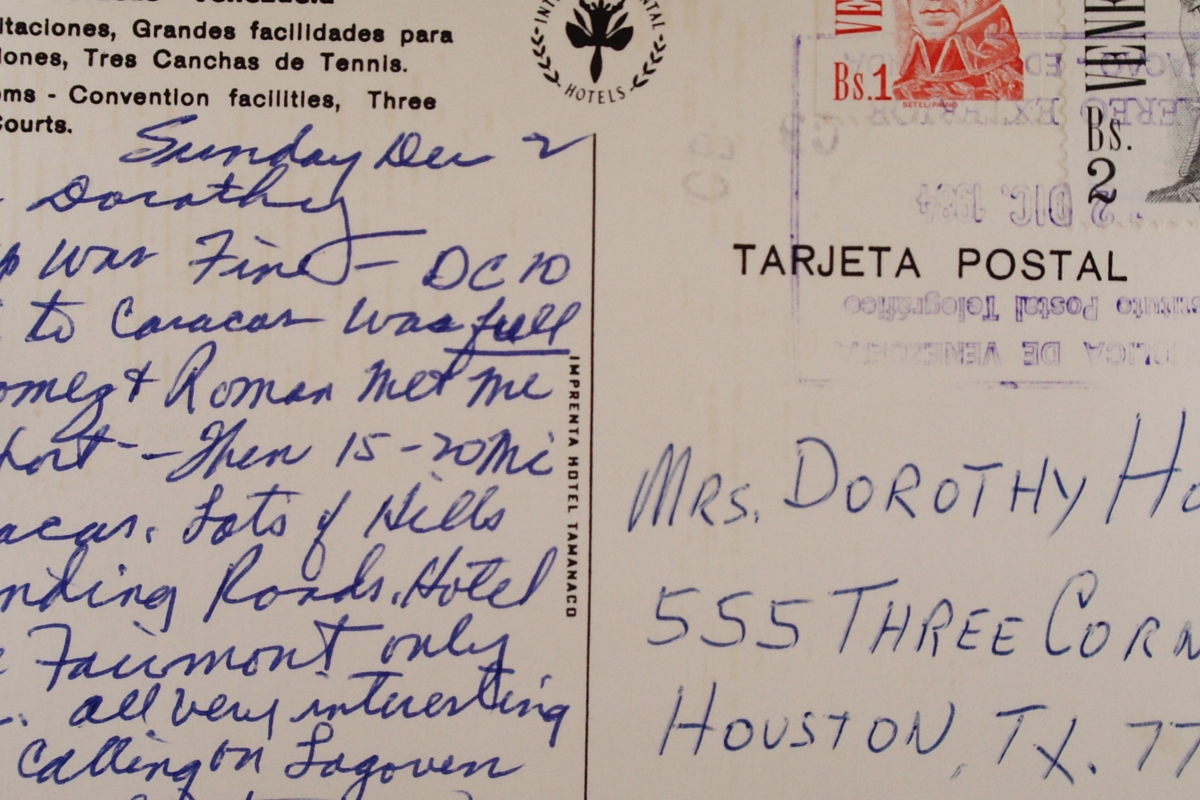 Venezuela
itaciones, Grandes facilidades para
lones, Tres Canchas de Tennis.
oms - Convention facilities, Three
Courts.
HOTELS
Sunday Dec 2
Dorothy
p was Fine — DC 10
to Caracas was full
omez & Roman Met Me
port — Then 15-20 Mi
acas. Lots of Hills
nding Roads. Hotel
Fairmont only
all very interesting
Calling on Lagoven
IMPRENTA HOTEL TAMANACO
VE
Bs.1
VENE
Bs.
2
2 DIC. 1984
TARJETA POSTAL
tituto Postal Telegráfico
BLICA DE VENEZUELA
MRS. DOROTHY HO
555 THREE CORN
HOUSTON, TX. 77